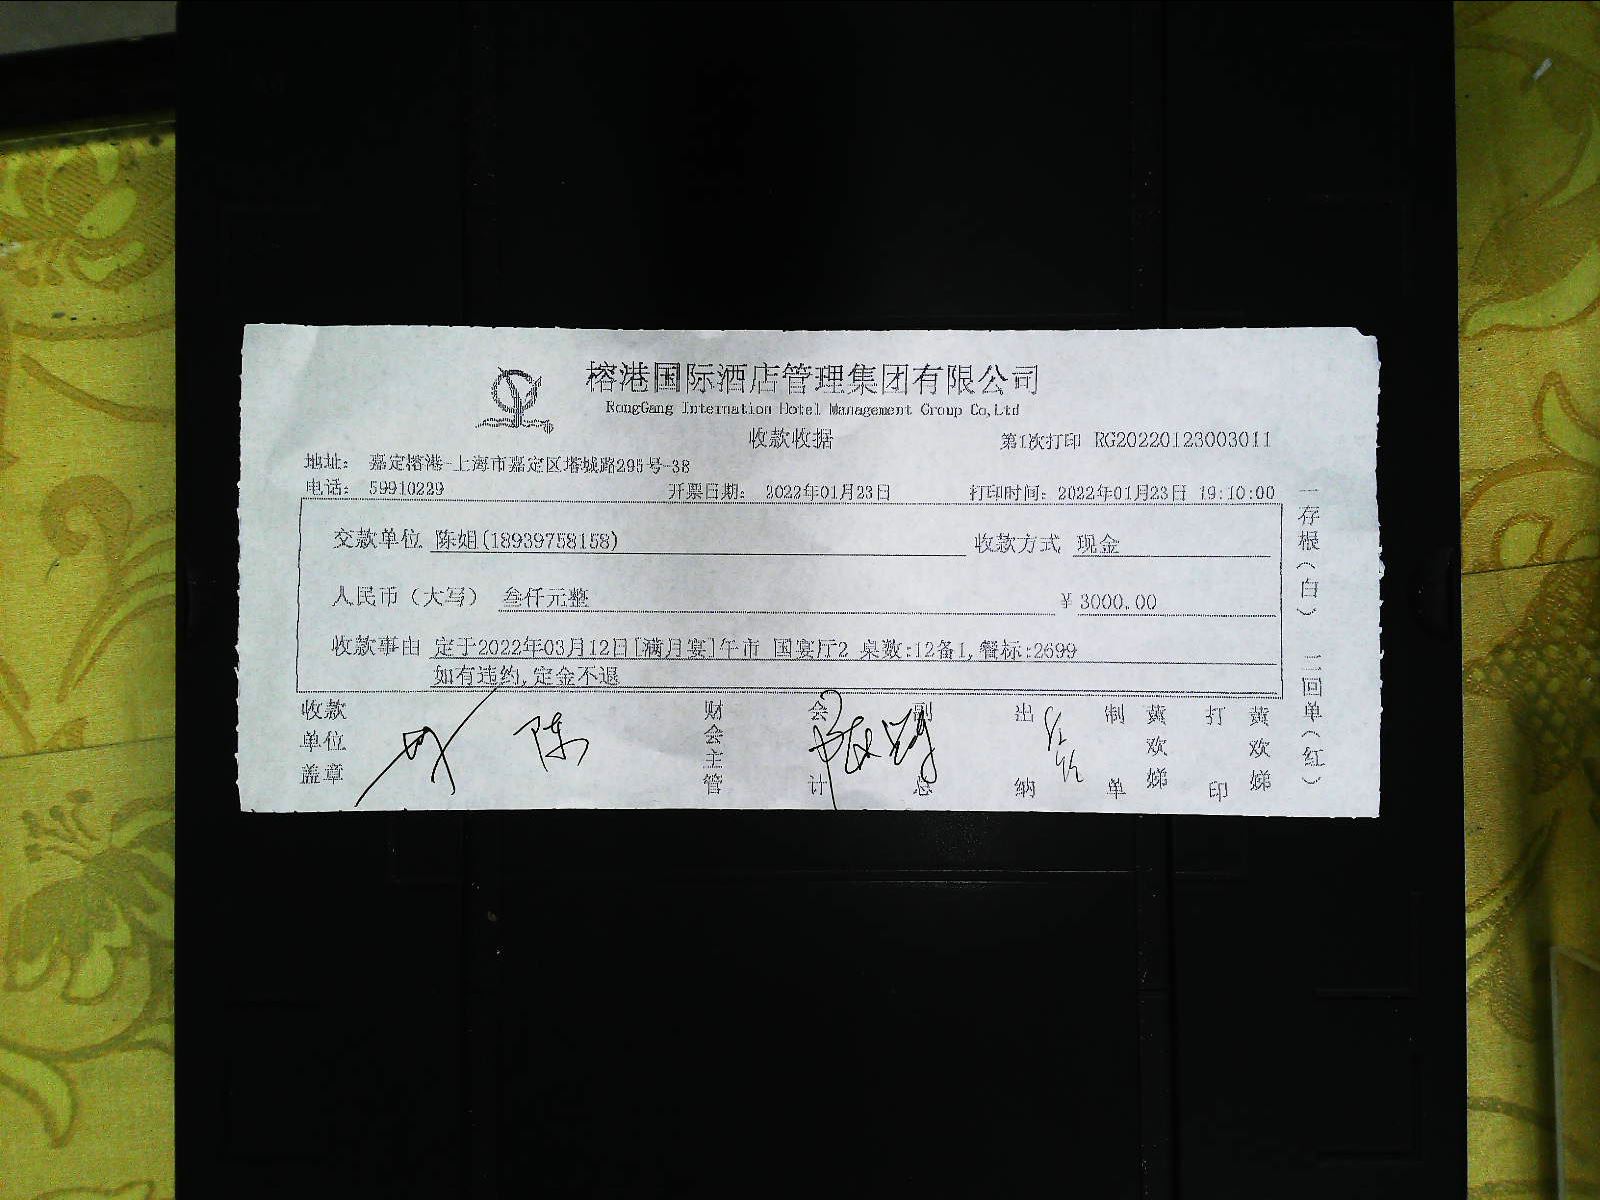 榕港国际酒店管理集团有限公司
RongGang Internation Hotel Management Group Co,Ltd
收款收据 第1次打印 RG20220123003011
地址： 嘉定榕港-上海市嘉定区塔城路295号-38
电话： 59910229 开票日期： 2022年01月23日 打印时间：2022年01月23日 19:10:00
交款单位 陈姐(18939758158) 收款方式 现金
人民币（大写） 叁仟元整 ¥3000.00
收款事由 定于2022年03月12日[满月宴]午市 国宴厅2 桌数:12备1,餐标:2699
如有违约,定金不退
收款单位盖章 陈 财会主管 会计 副总 出纳 制单 黄欢娣 打印 黄欢娣
一存根（白） 二回单（红）